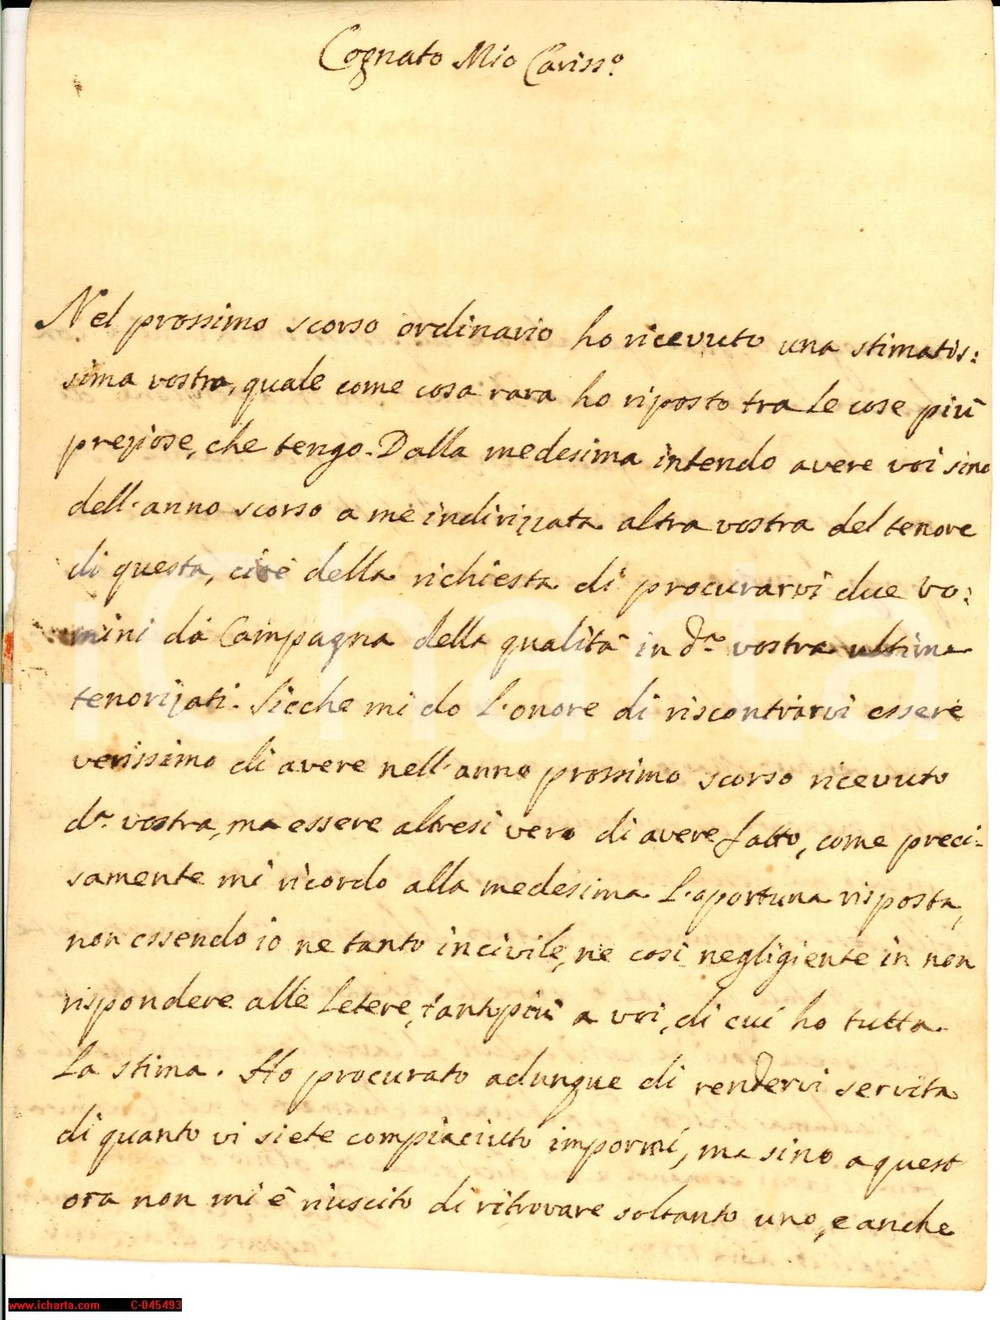 Cognato Mio Cariss.o
Nel prossimo scorso ordinario ho ricevuto una stimatis:
sima vostra, quale come cosa rara ho riposto tra le cose più
preziose, che tengo. Dalla medesima intendo avere voi sino
dell'anno scorso a me indirizzata altra vostra del tenore
di questa, cioè della richiesta di procurarvi due Vo:
mini dà Campagna della qualità in d.a vostra ultima
tenorizati. Sicche mi do l'onore di riscontrarvi essere
verissimo di avere nell'anno prossimo scorso ricevuto
d.a vostra, ma essere altresi vero di avere fatto, come preci:
samente mi ricordo alla medesima l'oportuna risposta,
non essendo io ne tanto incivile, ne cosi negligiente in non
rispondere alle letere, tantopiù a voi, di cui ho tutta
la stima. Ho procurato adunque di rendervi servita
di quanto vi siete compiaciuto impormi, ma sino a quest
ora non mi è riuscito di ritrovare soltanto uno, e anche
icharta
www.icharta.com C-045493